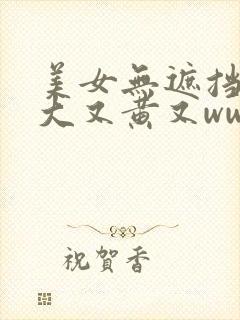 美女無遮挡
大又黄又ww
祝賀香